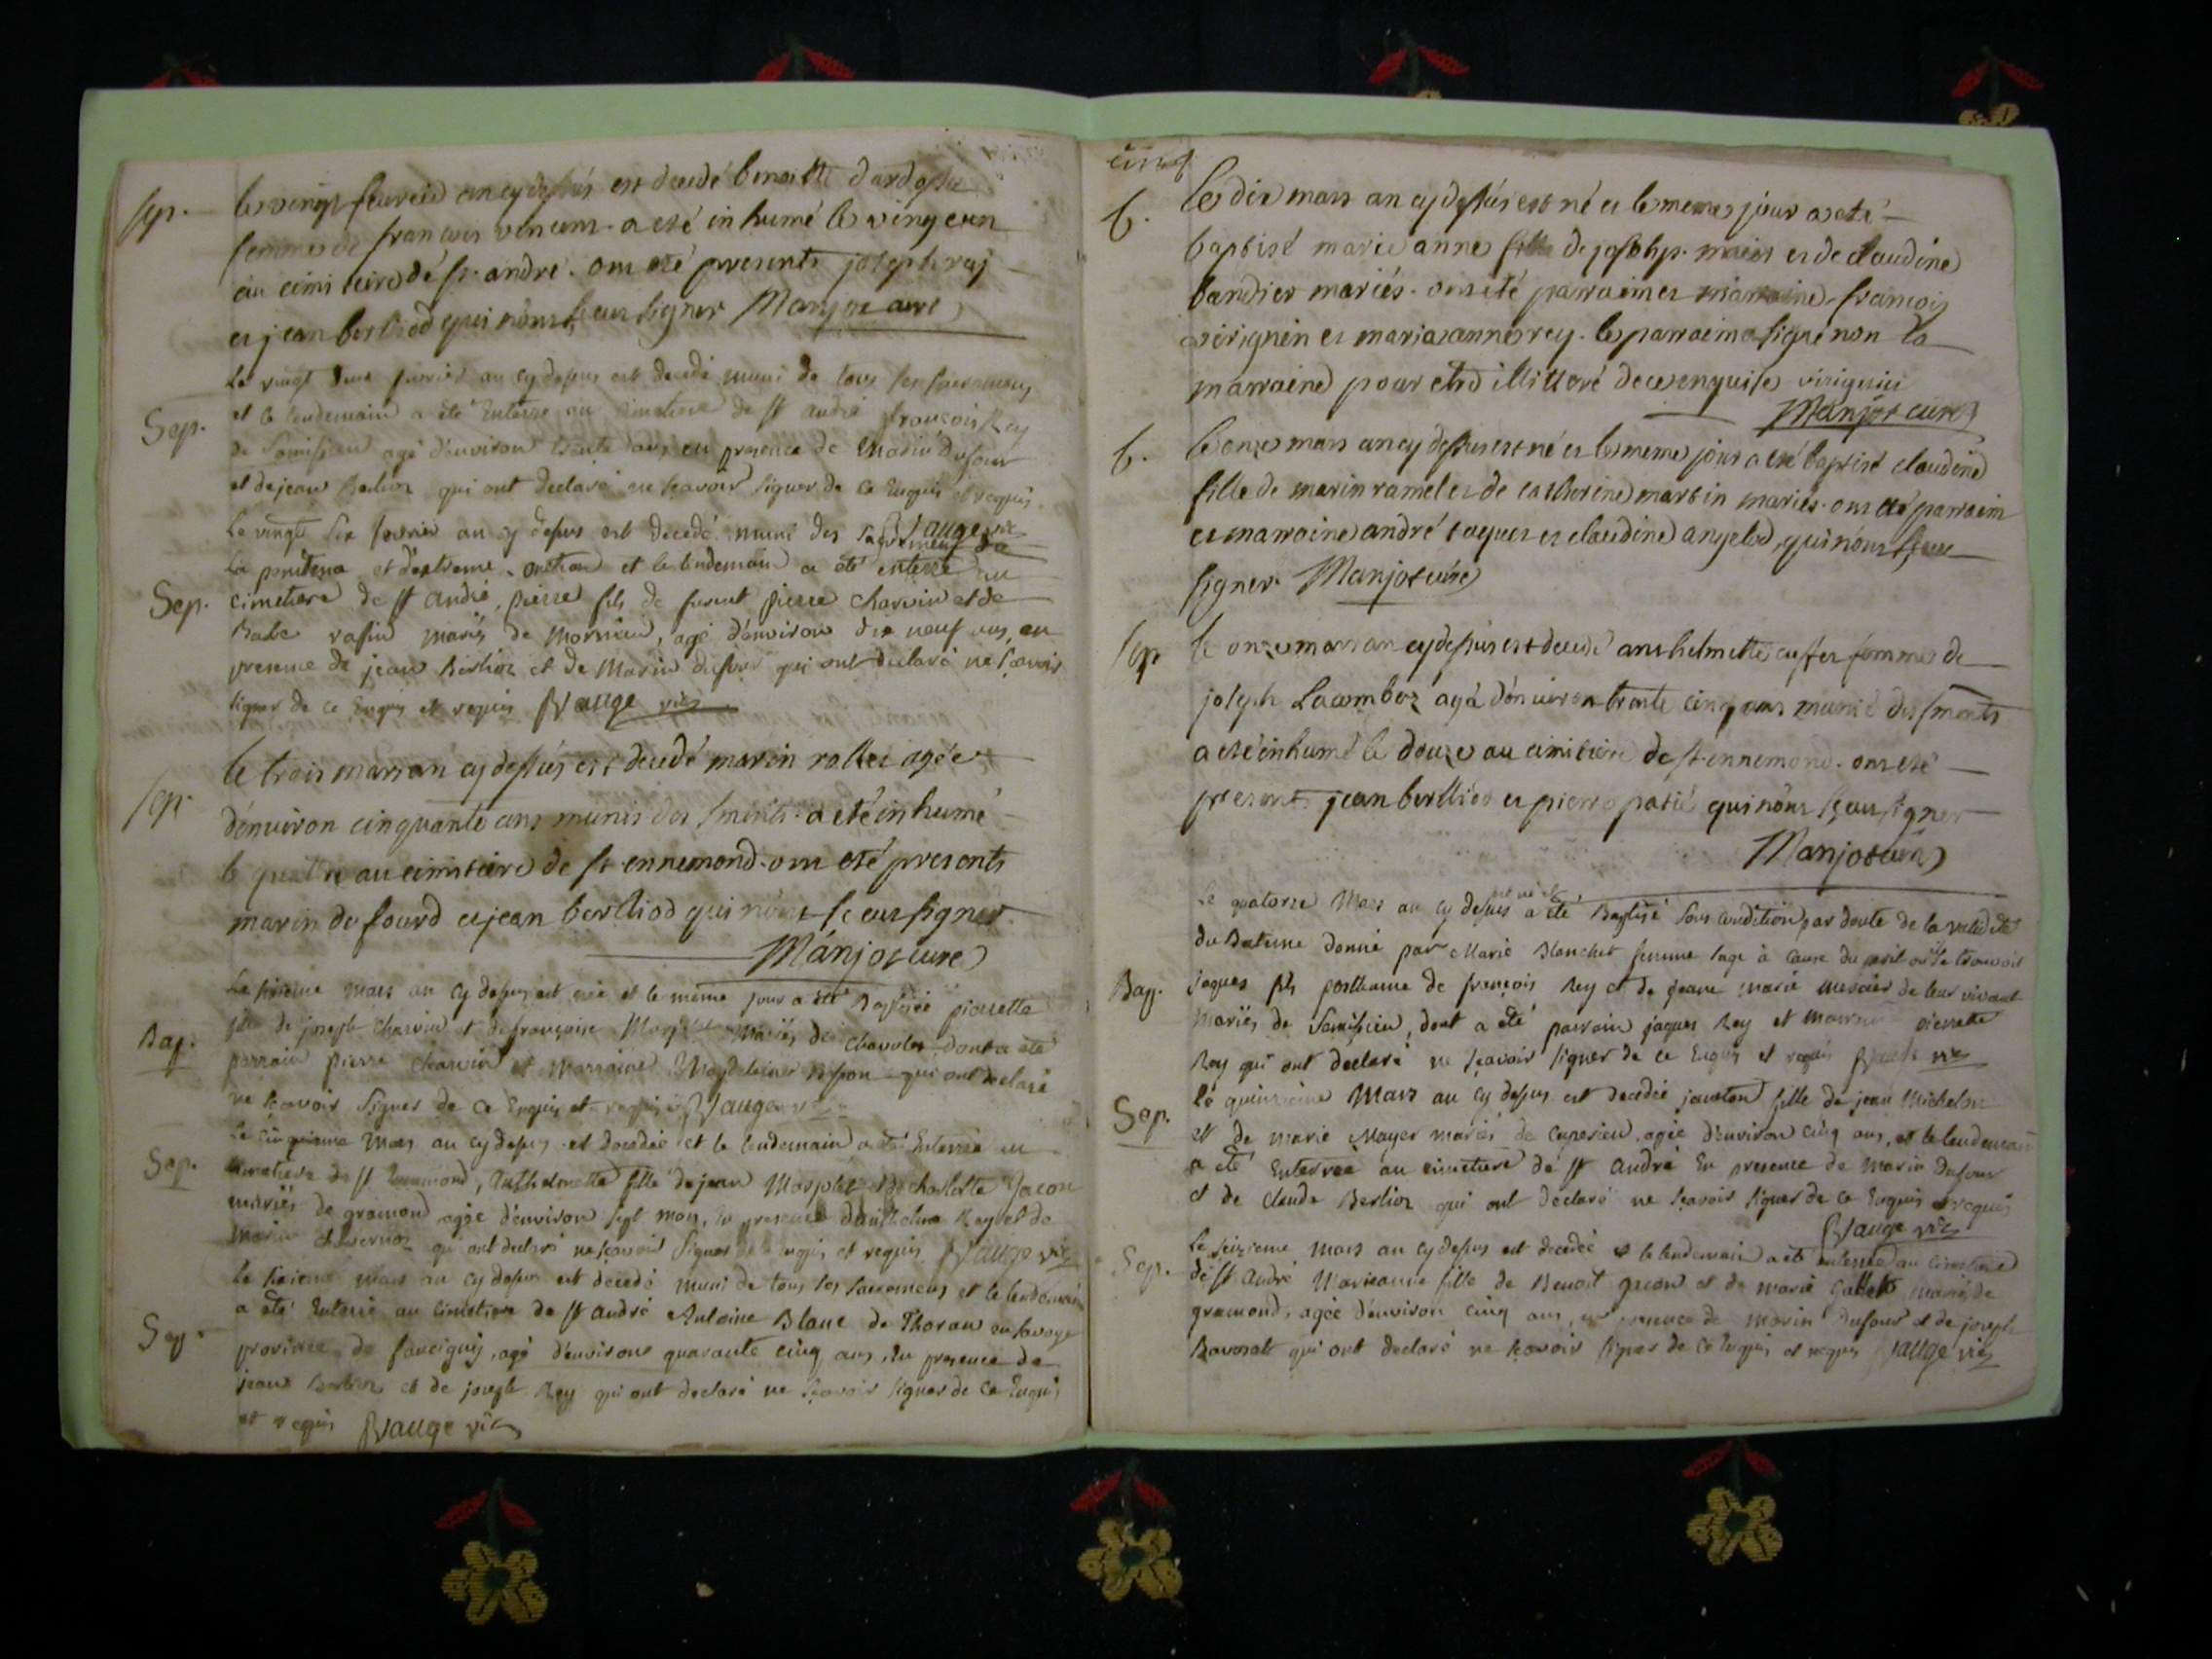 sep. le vingt feuvrié an cy dessus est decedé benoitte
femme de francois vincent. a eté inhumé le vingt eun
au cimitiere de st. andré. ont eté presents joseph rey
et jean berlliod qui n'ont sceu signer Manjot curé
Le vingt deux fevrier an cy dessus est decedé muni de tous ses sacremens
Sep. et le lendemain a été Enterré au cimetiere de st andré françois Rey
de Samissieu agé d'environ trente ans, en presence de Marin Dufour
et de jean Berlioz qui ont declaré ne scavoir signer de ce Enquis et requis
Vauge vic
Le vingt six fevrier an cy dessus est decedé muni des sacremens de
la penitence et d'extreme-onction et le lendemain a été enterré au
Sep. cimetiere de st andré, pierre fils de furent pierre charvin et de
mariés de Mornieu, agé d'environ dix neuf ans, en
presence de jean Berlioz et de Marin dufour qui ont declaré ne scavoir
signer de ce Enquis et requis Vauge vic
le trois mars an cy dessus est decedé marin rollet agée
sep. d'enuiron cinquante ans munis des sments. a eté inhumé
le quatre au cimitiere de st. ennemond. ont eté presents
marin du fourd et jean berlliod qui n'ont sceu signer.
Manjot curé
mars an cy dessus est née et le même jour a été Baptisée pierrette
fille de joseph charvin et de françoise mariés de dont a été
Bap. parrain pierre charvin et marraine qui ont declaré
ne scavoir signer de ce Enquis et requis Vauge
Le cinquieme Mars an cy dessus est decedée et le lendemain a été Enterrée au
Sep. cimetiere de st Ennemond, Anthelmette fille de jean et de charlotte Jacon
mariés de gramond agée d'environ sept mois, en presence d'anthelme Rey et de
Marin qui ont declaré ne scavoir signer de ce enquis et requis Vauge vic
Le mars an cy dessus est decedé muni de tous les sacremens et le lendemain
a été Enterré au cimetiere de st andré Antoine Blanc de Thoran en savoye
Sep. province de faucigny, agé d'environ quarante cinq ans, En presence de
jean Berlioz et de joseph Rey qui ont declaré ne scavoir signer de ce Enquis
et requis Vauge vic
cinq
b. le dix mars an cy dessus est né et le meme jour a eté
baptisé marie anne fille de et de claudine
bandier mariés. ont eté parrain et marraine francois
virignin et marie anne rey. le parrain a signé non la
marraine pour etre illitteré de ce enquise viriguin
Manjot curé
b. le onze mars an cy dessus est né et le meme jour a eté baptisé claudine
fille de marin ramel et de catherine martin mariés. ont eté parrain
et marraine andré et claudine angelod, qui n'ont sceu
signer. Manjot curé
sep le onze mars an cy dessus est decedé anthelmette femme de
joseph Lacomboz agé d'enuiron trente cinq ans munie des sments
a eté inhumé le douze au cimitiere de st. ennemond. ont eté
presents jean berlliod et pierre qui n'ont sceu signer
Manjot curé
Le quatorze Mars an cy dessus est né et a été Baptisé sous condition par doute de la validité
du Bateme donné par Marie Blanchet femme sage à cause du peril où il se trouvoit
Bap. jaques fils posthume de françois Rey et de jeane marie mercier de leur vivant
mariés de Samissieu, dont a été parrain jaques Rey et marraine pierrette
Rey qui ont declaré ne scavoir signer de ce Enquis et requis Vauge vic
Sep. le quinzieme Mars an cy dessus est decedée jeanton fille de jean
et de marie Mayer mariés de agée d'environ cinq ans, et le lendemain
a été Enterrée au cimetiere de st André En presence de Marin Dufour
et de claude Berlioz qui ont declaré ne scavoir signer de ce Enquis et requis
Vauge vic
Le seizieme mars an cy dessus est decedée et le lendemain a été enterrée au cimetiere
Sep. de st André Marieanne fille de Benoit et de marie mariés de
gramond, agée d'environ cinq ans, en presence de Marin Dufour et de joseph
qui ont declaré ne scavoir signer de ce Enquis et requis Vauge vic